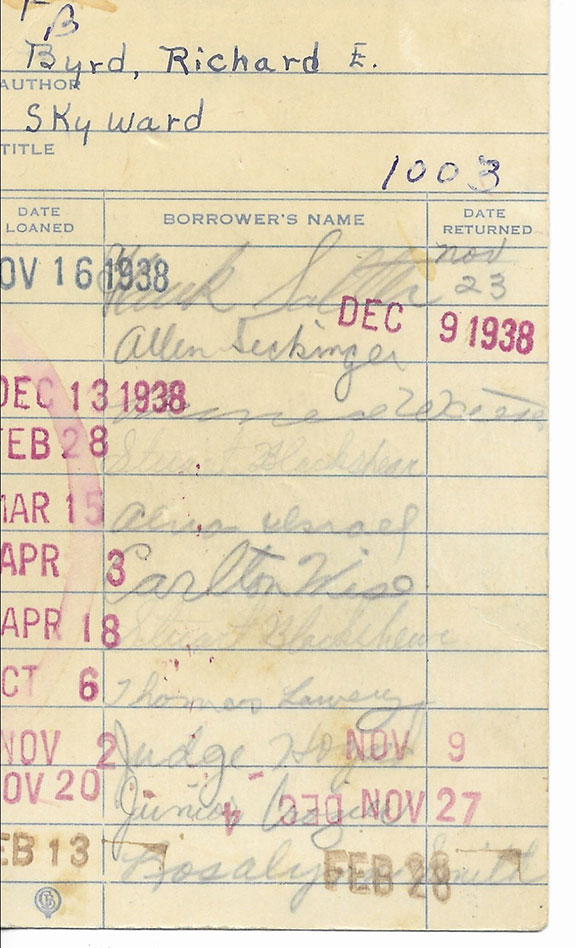 B
Byrd, Richard E.
AUTHOR
Skyward
TITLE
1003
DATE LOANED BORROWER'S NAME DATE RETURNED
OV 16 1938 nov 23
Allen Seckinger DEC 9 1938
DEC 13 1938
FEB 28 Stuart Blackshear
MAR 15 Alma Israel
APR 3 Carlton Wise
APR 18 Stuart Blackshear
CT 6 Thomas Lowery
NOV 2 Judge NOV 9
OV 20 Junior DEC 4 NOV 27
EB 13 Rosalynn Smith FEB 28